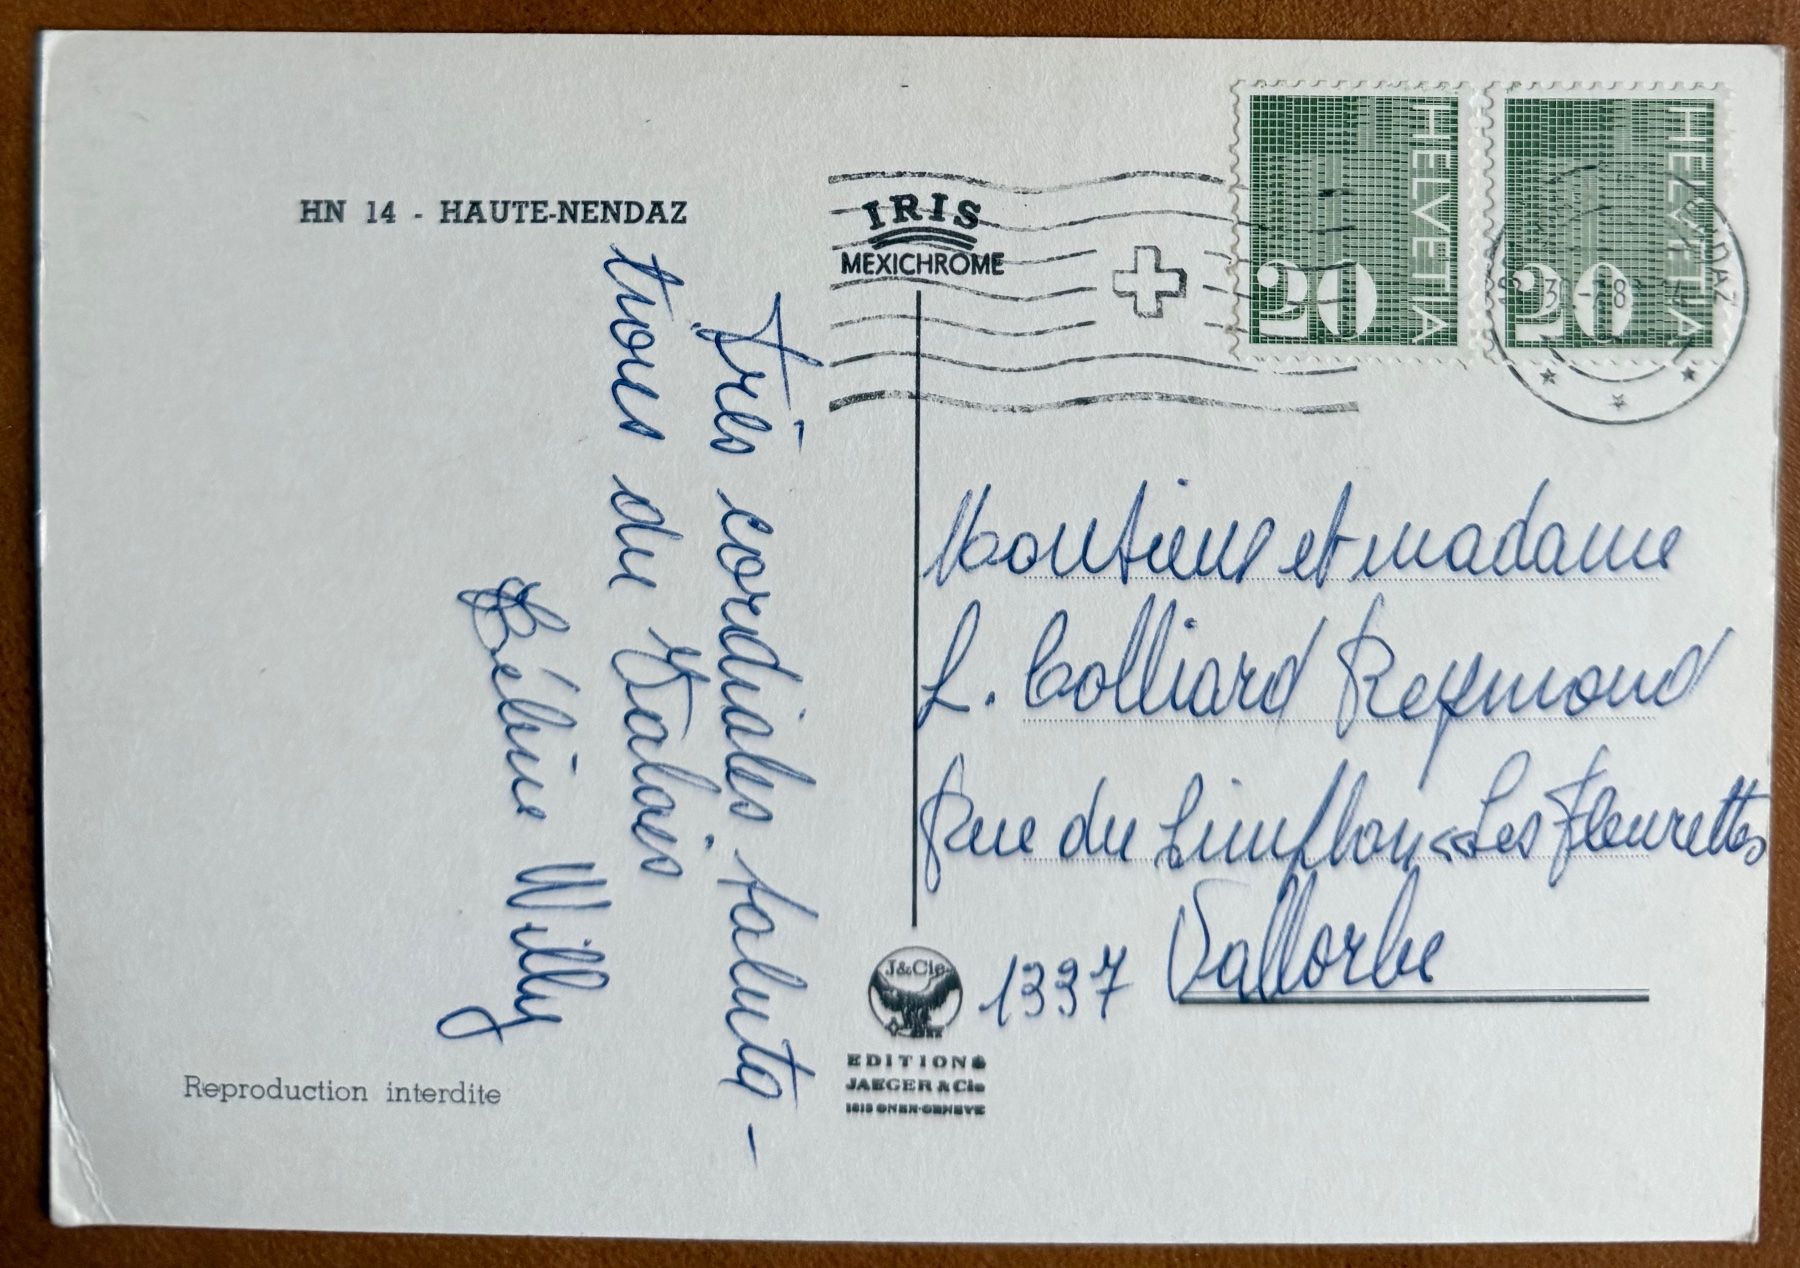 HN 14 - HAUTE-NENDAZ
Très cordiales saluta-
tions du Valais
Willy
Reproduction interdite
IRIS
MEXICHROME
J&Cie
EDITIONS
JAEGER & Cie
1213 ONEX-GENEVE
HELVETIA
50
HELVETIA
50
Monsieur et madame
L. Colliard Reymond
Rue du Simplon "Les Fleurettes
1337 Vallorbe